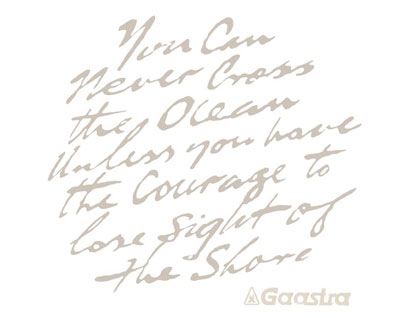 You Can
Never Cross
the Ocean
Unless you have
the Courage to
lose sight of
the Shore
Gaastra